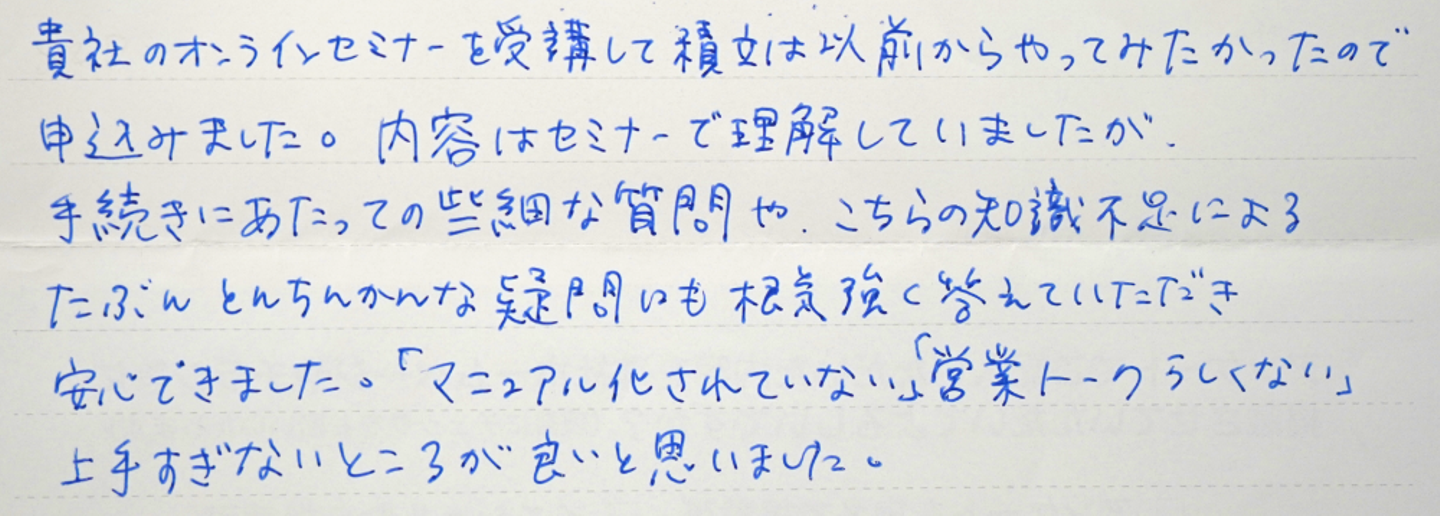 貴社のオンラインセミナーを受講して積立は以前からやってみたかったので
申込みました。内容はセミナーで理解していましたが、
手続きにあたっての些細な質問や、こちらの知識不足による
たぶんとんちんかんな疑問にも根気強く答えていただき
安心できました。「マニュアル化されていない」「営業トークらしくない」
上手すぎないところが良いと思いました。